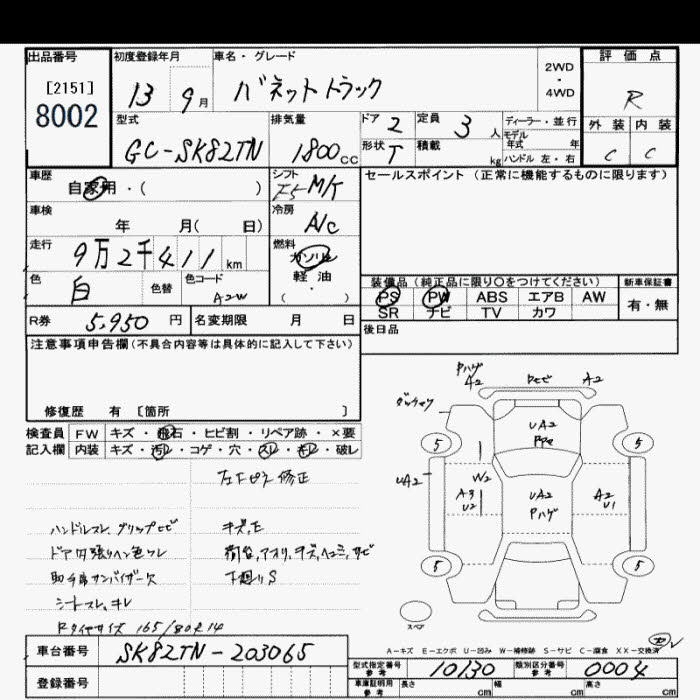 出品番号 初度登録年月 車名・グレード 2WD・4WD 評価点
[2151] 8002 13 9月 バネットトラック R
型式 排気量 ドア 2 定員 3人 ディーラー・並行 外装 内装
モデル年式 年
GC-SK82TN 1800cc 形状 T 積載 kg ハンドル 左・右 C C
車歴 自家用・( ) シフト F5 M/T セールスポイント (正常に機能するものに限ります)
車検 年 月( 日) 冷房 A/C
走行 9万2千411km 燃料 ガソリン
軽油
( )
色 白 色替 色コード A2W
装備品(純正品に限り○をつけてください) 新車保証書
PS PW ABS エアB AW 有・無
SR ナビ TV カワ
R券 5,950円 名変期限 月 日 後日品
注意事項申告欄(不具合内容等は具体的に記入して下さい)
修復歴 有 [箇所 ]
検査員 FW キズ・飛石・ヒビ割・リペア跡・×要
記入欄 内装 キズ・汚レ・コゲ・穴・スレ・キレ・破レ
修正
ハンドルスレ、グリップヒビ キズ、E
ドア内張りヘン色ワレ 荷台、アオリ、キズ、ヘコミ、サビ
助手席サンバイザー欠 下廻りS
シートスレ、キレ
Rタイヤサイズ 165/80R14
PハゲA2 A2
UA2
5 5
UA2 W2
A3 U2 UA2 Pハゲ A2 U1
5 5
スペア
A-キズ E-エクボ U-凹み W-補修跡 S-サビ C-腐食 XX-交換済
車台番号 SK82TN-203065
登録番号
型式指定番号 参考 10130 類別区分番号 参考 0004
車庫証明用 参考 長さ cm 幅 cm 高さ cm